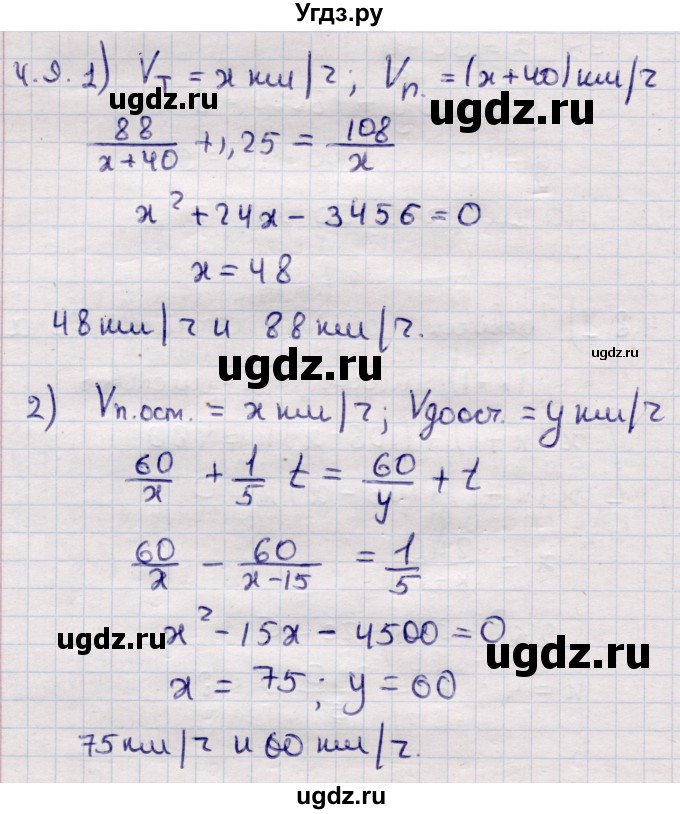 Угдз.ру
4.9. 1) Vт = x км/ч; Vп. = (x+40) км/ч
88/(x+40) + 1,25 = 108/x
ugdz.ru
x² + 24x - 3456 = 0
x = 48
48 км/ч и 88 км/ч.
ugdz.ru
ugdz.ru
2) Vп.ост. = x км/ч; Vдоост. = y км/ч
ugdz.ru
60/x + 1/5 t = 60/y + t
60/x - 60/(x-15) = 1/5
ugdz.ru
x² - 15x - 4500 = 0
ugdz.ru
x = 75; y = 60
75 км/ч и 60 км/ч.
ugdz.ru